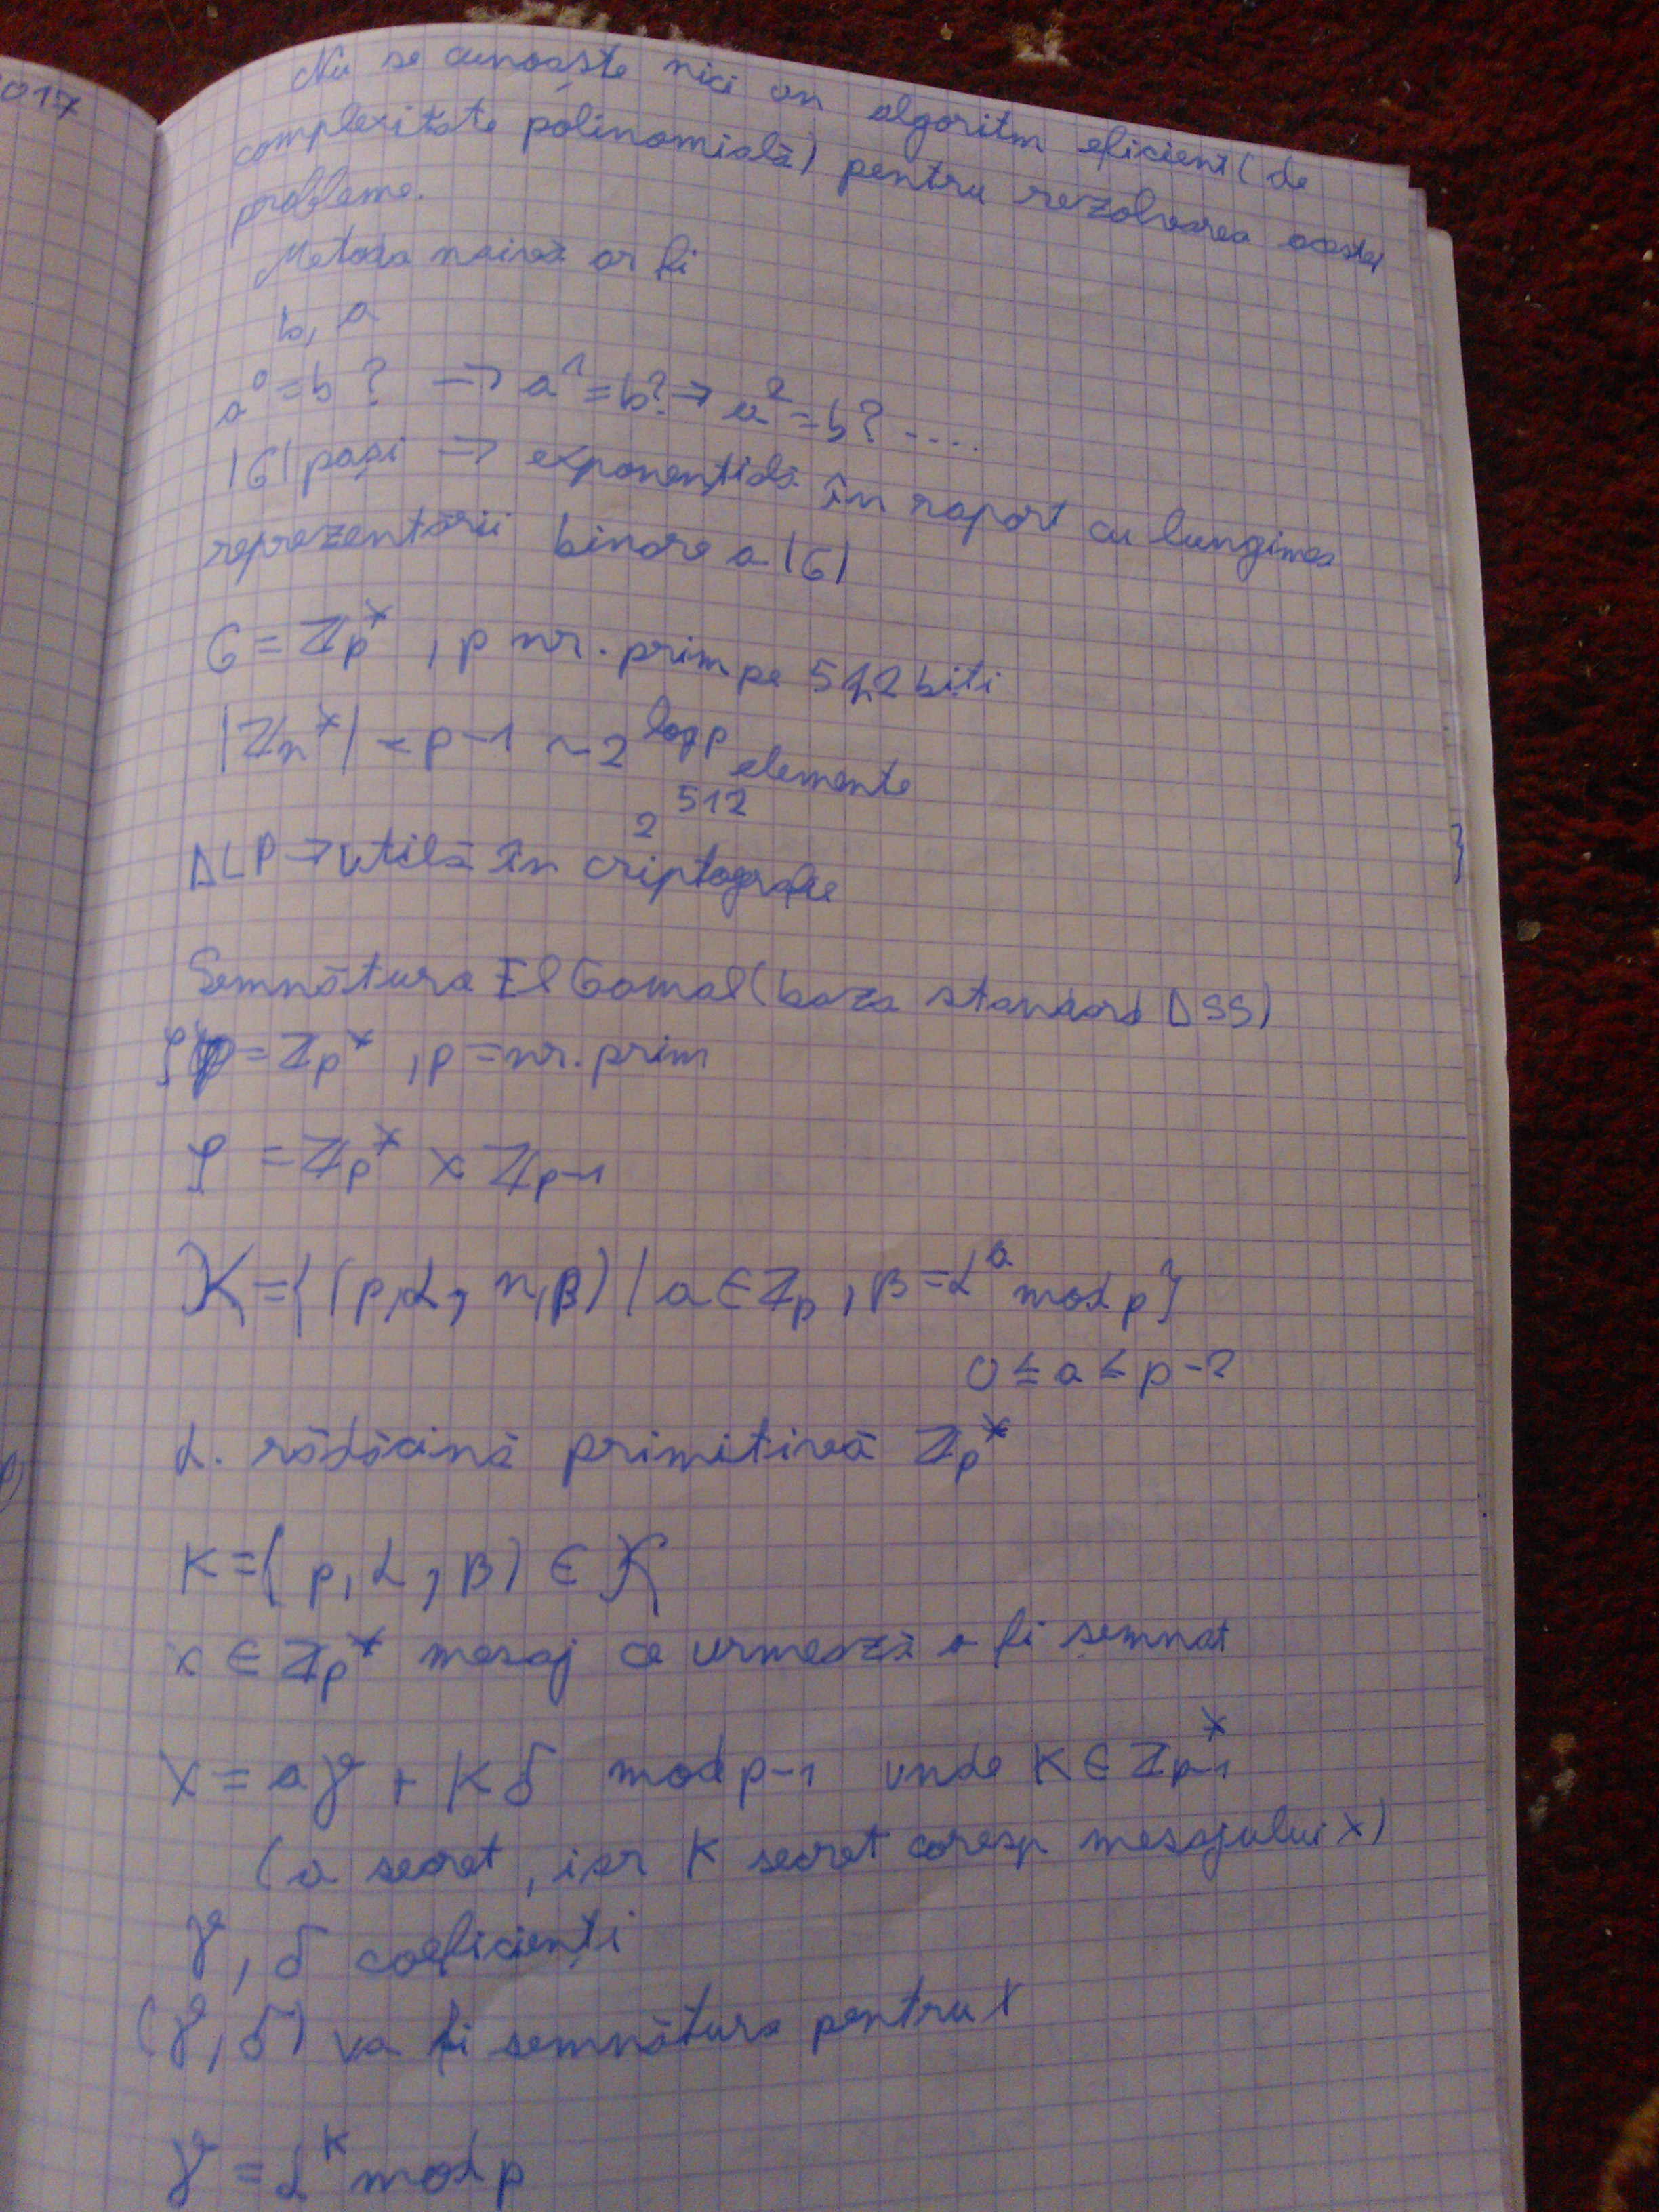 017
Nu se cunoaște nici un algoritm eficient (de
complexitate polinomială) pentru rezolvarea acestei
probleme.
Metoda naivă ar fi
b, a
a⁰ = b ? → a¹ = b? → a² = b? ....
|G| pași → exponențială în raport cu lungimea
reprezentării binare a |G|
G = ℤp* , p nr. prim pe 512 biti
|ℤn*| = p-1 ~ 2^log p elemente
2^512
DLP → utilă în criptografie
Semnătura El Gamal (baza standard DSS)
𝒫 = ℤp* , p = nr. prim
𝒮 = ℤp* × ℤp-1
𝒦 = {(p, α, n, β) | a ∈ ℤp , β = α^a mod p}
0 ≤ a ≤ p-2
α. rădăcină primitivă ℤp*
K = (p, α, β) ∈ 𝒦
x ∈ ℤp* mesaj ce urmează a fi semnat
x = aγ + Kδ mod p-1 unde K ∈ ℤp-1*
(a secret, iar K secret coresp mesajului x)
γ, δ coeficienți
(γ, δ) va fi semnătura pentru x
γ = α^K mod p